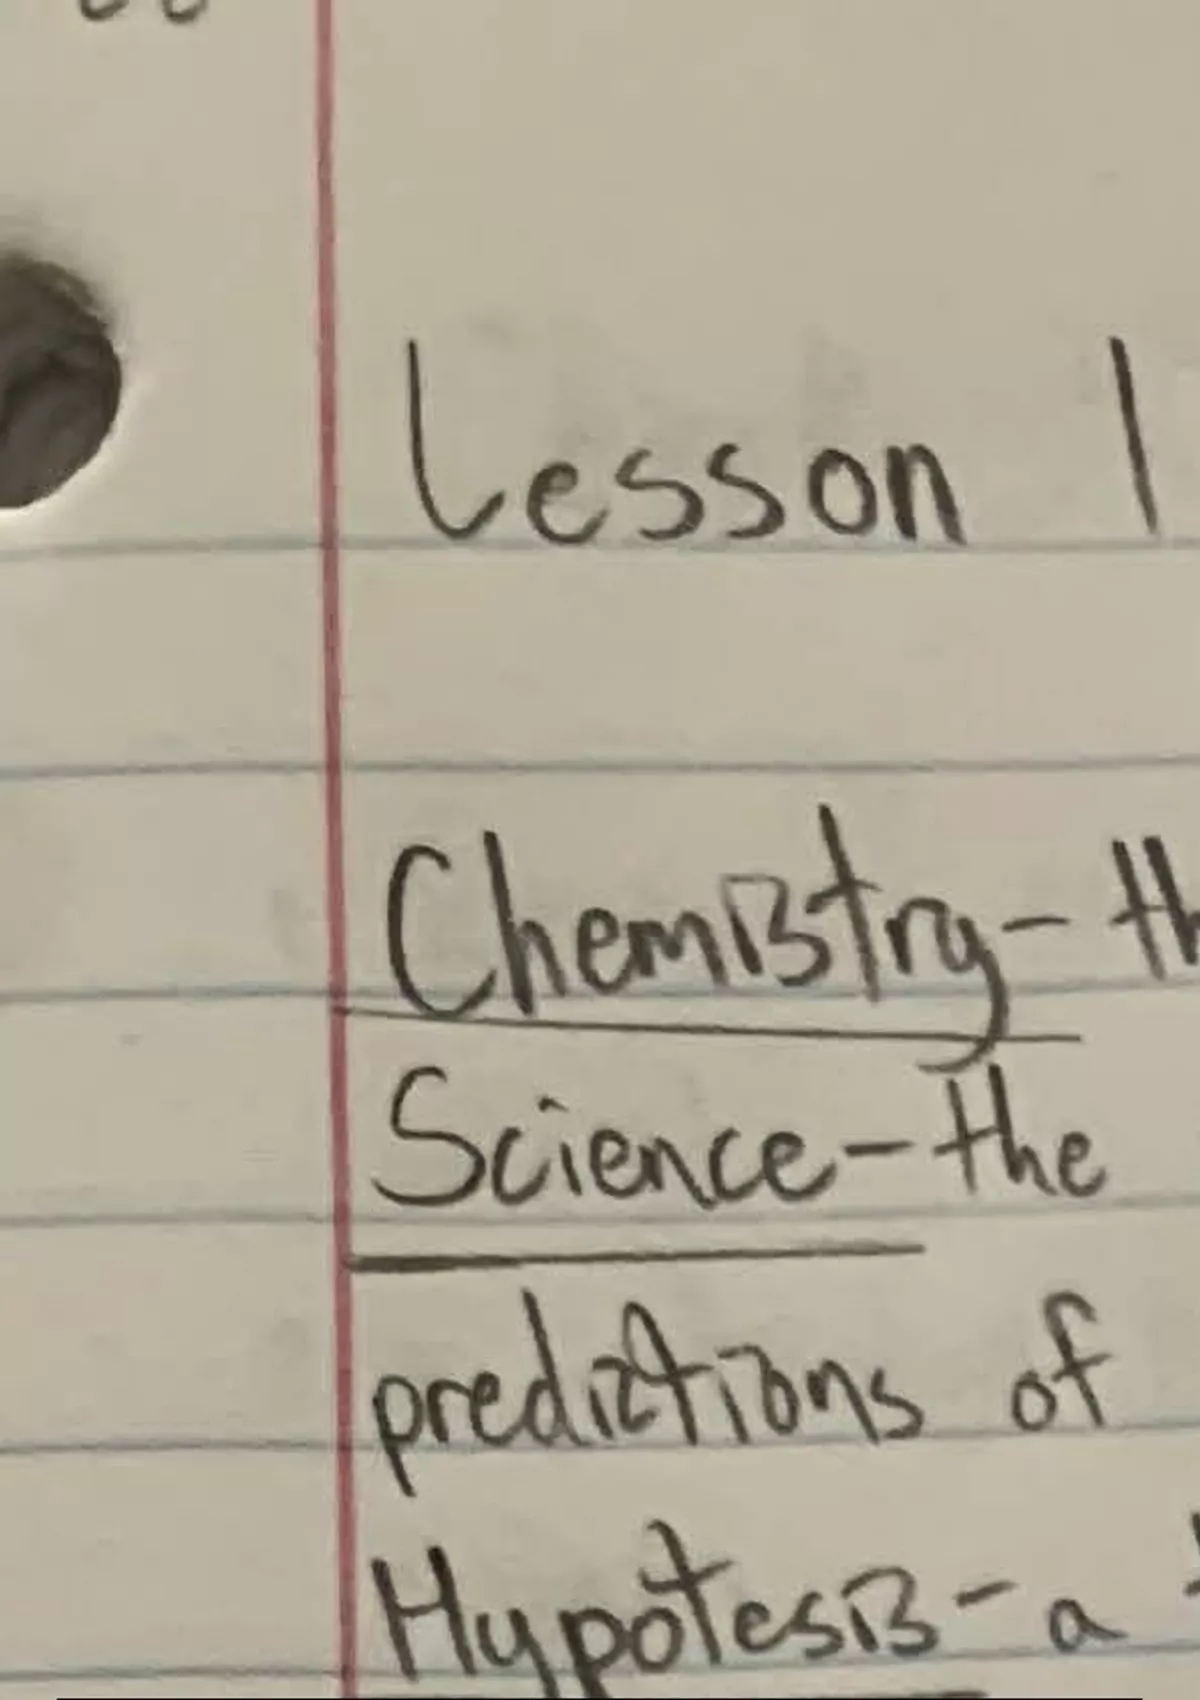 Lesson 1
Chemistry - th
Science - the
predictions of
Hypotesis - a